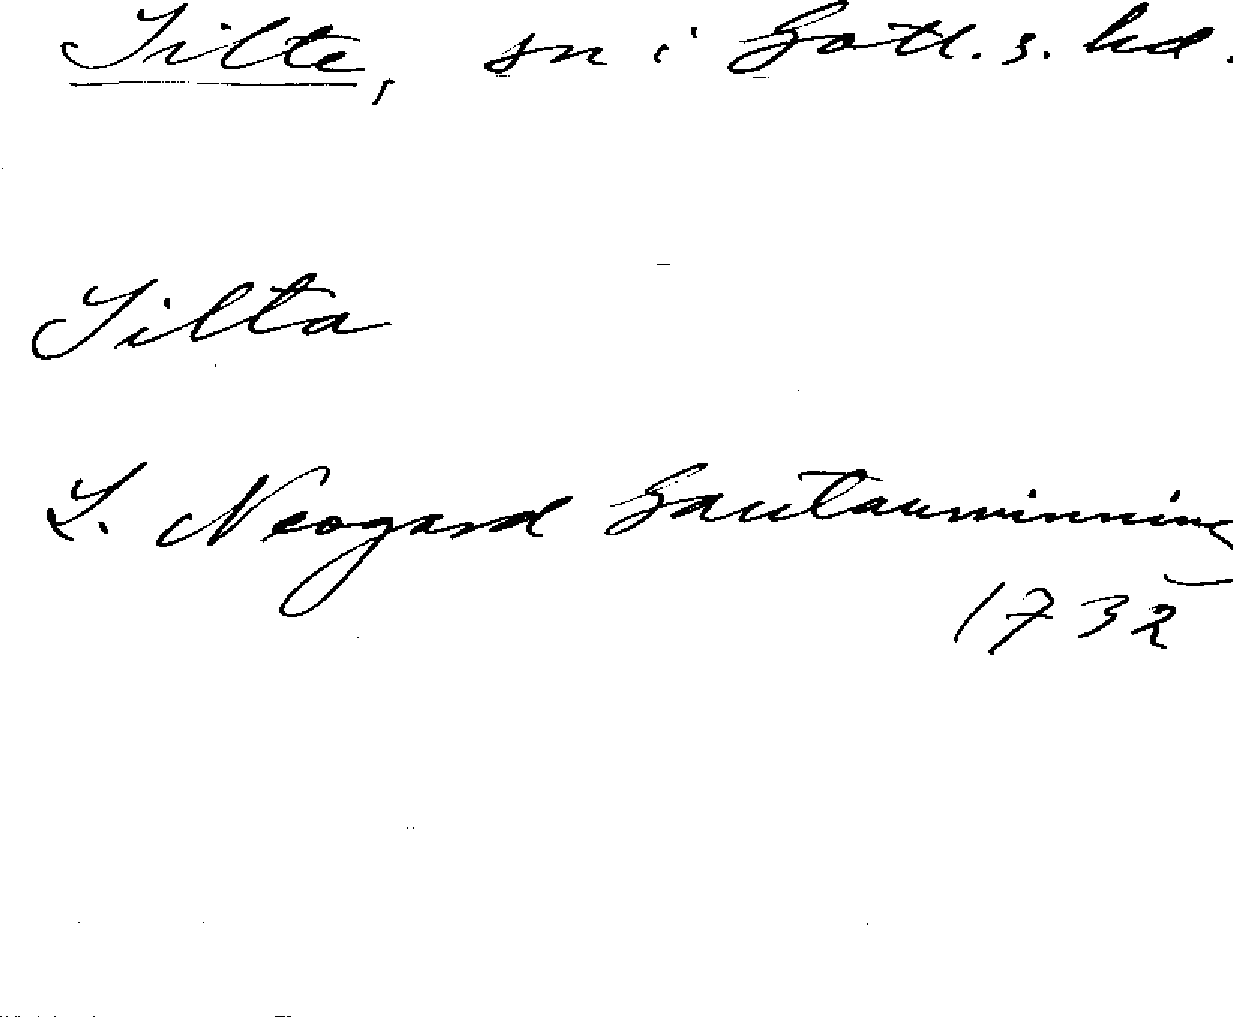 Silte, sn i Gotl. s. hd.
Silta
L. Neogard Gautauminning
1732